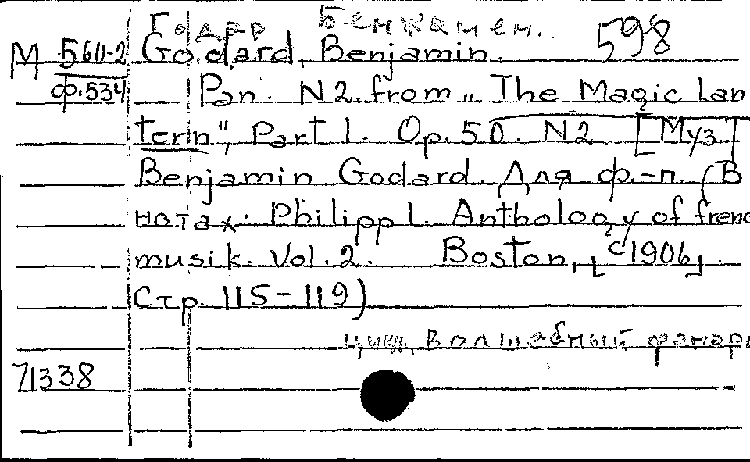 Годар Бенжамен.
М 560-2 Godard, Benjamin. 598
ф.534 Pan. N2 from „ The Magic Lan
tern", Part I. Op. 50. N2 [Муз]
Benjamin Godard. Для ф.-п. (В
нотах: Philipp I. Anthology of frenc
musik. Vol. 2. Boston, [c1906]
Стр. 115-119)
цикл, Волшебный фонарь
71338